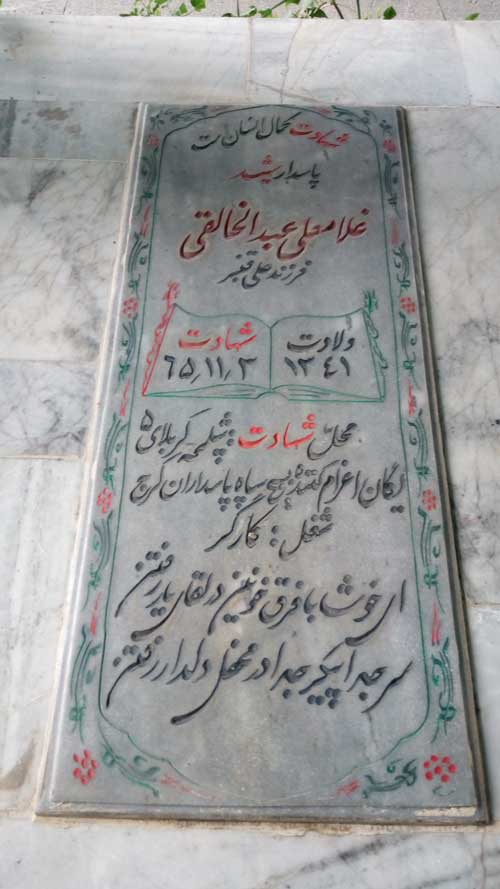 شهادت کمال انسان است
پاسدار شهید
غلامعلی عبدالخالقی
فرزند علی قنبر
ولادت
۱۳۴۱
شهادت
۶۵٫۱۱٫۳
محل شهادت: شلمچه کربلای ۵
ارگان اعزام کننده: بسیج سپاه پاسداران کرج
شغل: کارگر
ای خوشا با فرق خونین در لقای یار رفتن
سر جدا پیکر جدا در محفل دلدار رفتن